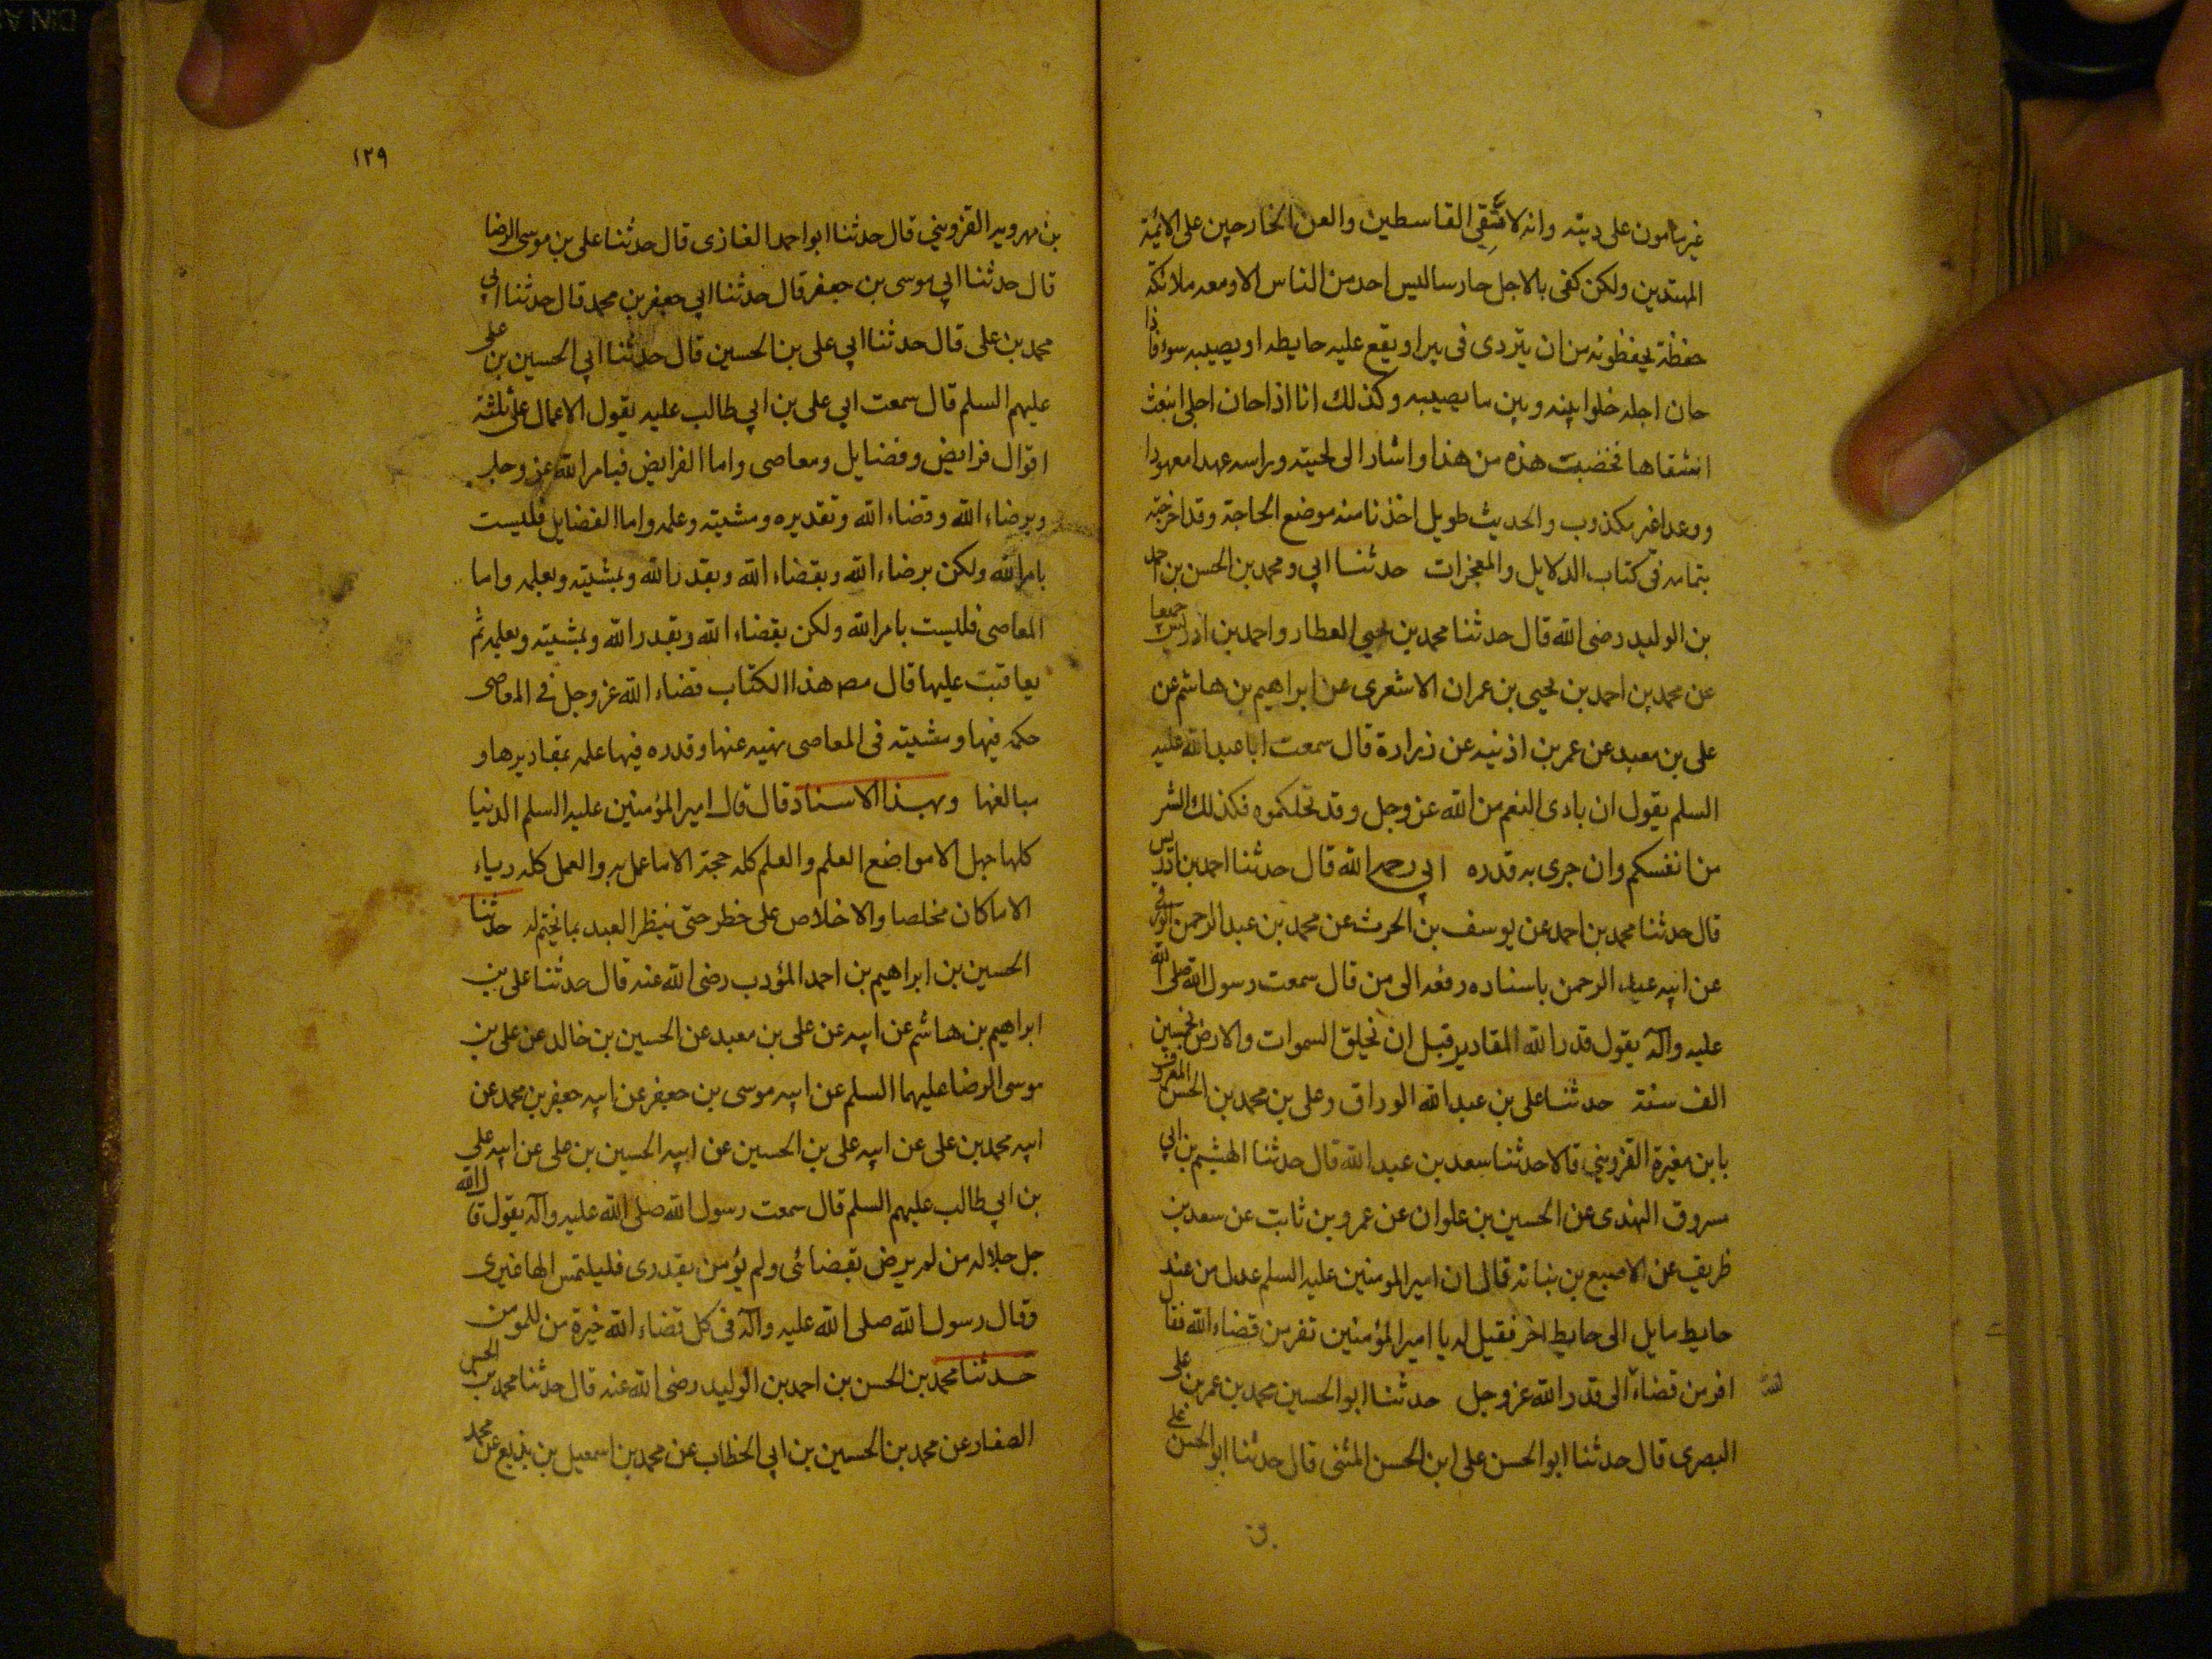 غير مامون على دينه وانه لاشقى القاسطين والعن الخارجين على الائمة
المهتدين ولكن كفى بالاجل حارسا ليس احد من الناس الا ومعه ملائكة
حفظة يحفظونه من ان يتردى في بير او يقع عليه حايط او يصيبه سوء فاذا
حان اجله خلوا بينه وبين ما يصيبه وكذلك انا اذا حان اجلى انبعث
اشقاها فخضبت هذه من هذا واشار الى لحيته وراسه عهدا معهودا
ووعدا غير مكذوب والحديث طويل اخذنا منه موضع الحاجة وقد اخرجته
بتمامه في كتاب الدلايل والمعجزات حدثنا ابي ومحمد بن الحسن بن احمد
بن الوليد رضى الله قال حدثنا محمد بن يحيى العطار واحمد بن ادريس جميعا
عن محمد بن احمد بن يحيى بن عمران الاشعرى عن ابراهيم بن هاشم عن
على بن معبد عن عمر بن اذنيه عن زرارة قال سمعت ابا عبد الله عليه
السلم يقول ان بادى النعم من الله عز وجل وقد نحلكموه فكذلك الشر
من انفسكم وان جرى به قدره ابي رحمه الله قال حدثنا احمد بن ادريس
قال حدثنا محمد بن احمد عن يوسف بن الحرث عن محمد بن عبد الرحمن العرزمى
عن ابيه عبد الرحمن باسناده رفعه الى من قال سمعت رسول الله صلى الله
عليه وآله يقول قدر الله المقادير قبل ان يخلق السموات والارض بخمسين
الف سنة حدثنا على بن عبد الله الوراق وعلى بن محمد بن الحسن المعروف
بابن مغيرة القزوينى قالا حدثنا سعد بن عبد الله قال حدثنا الهيثم بن ابي
مسروق النهدى عن الحسين بن علوان عن عمرو بن ثابت عن سعد بن
ظريف عن الاصبغ بن نباته قال ان امير المومنين عليه السلم عدل من عند
حايط مايل الى حايط اخر فقيل له يا امير المؤمنين تفر من قضاء الله فقال
افر من قضاء الى قدر الله عز وجل حدثنا ابو الحسين محمد بن عمر بن على
البصرى قال حدثنا ابو الحسن على ابن الحسن المثنى قال حدثنا ابو الحسن على
١٢٩
بن مهرويه القزويني قال حدثنا ابو احمد الغازى قال حدثنا على بن موسى الرضا
قال حدثنا ابي موسى بن جعفر قال حدثنا ابي جعفر بن محمد قال حدثنا ابي
محمد بن على قال حدثنا ابي على بن الحسين قال حدثنا ابي الحسين بن على
عليهم السلم قال سمعت ابي على بن ابي طالب عليه يقول الاعمال على ثلثة
اقوال فرايض وفضايل ومعاصى واما الفرايض فبامر الله عز وجل
وبرضاء الله وقضاء الله وتقديره ومشيته وعلمه واما الفضايل فليست
بامر الله ولكن برضاء الله وبقضاء الله وبقدر الله وبمشيته وبعلمه واما
المعاصى فليست بامر الله ولكن بقضاء الله وبقدر الله وبمشيته وبعلمه ثم
يعاقبت عليها قال مص هذا الكتاب قضاء الله عز وجل في المعاصى
حكمه فيها ومشيته فى المعاصى نهيه عنها وقدره فيها علمه بمقاديرها و
مبالغها وبهذا الاسناد قال قال امير المؤمنين عليه السلم الدنيا
كلها جهل الا مواضع العلم والعلم كله حجة الا ما عمل به والعمل كله رياء
الا ما كان مخلصا والاخلاص على خطر حتى ينظر العبد بما يختم له حدثنا
الحسين بن ابراهيم بن احمد المؤدب رضى الله عنه قال حدثنا على بن
ابراهيم بن هاشم عن ابيه عن على بن معبد عن الحسين بن خالد عن على بن
موسى الرضا عليهما السلم عن ابيه موسى بن جعفر عن ابيه جعفر بن محمد عن
ابيه محمد بن على عن ابيه على بن الحسين عن ابيه الحسين بن على عن ابيه على
بن ابي طالب عليهم السلم قال سمعت رسول الله صلى الله عليه وآله يقول قال الله
جل جلاله من لم يرض بقضائى ولم يؤمن بقدرى فليلتمس الها غيرى
وقال رسول الله صلى الله عليه وآله في كل قضاء الله خيرة من للمومن
حدثنا محمد بن الحسن بن احمد بن الوليد رضى الله عنه قال حدثنا محمد بن الحسن
الصفار عن محمد بن الحسين بن ابي الخطاب عن محمد بن اسمعيل بن بزيع عن محمد